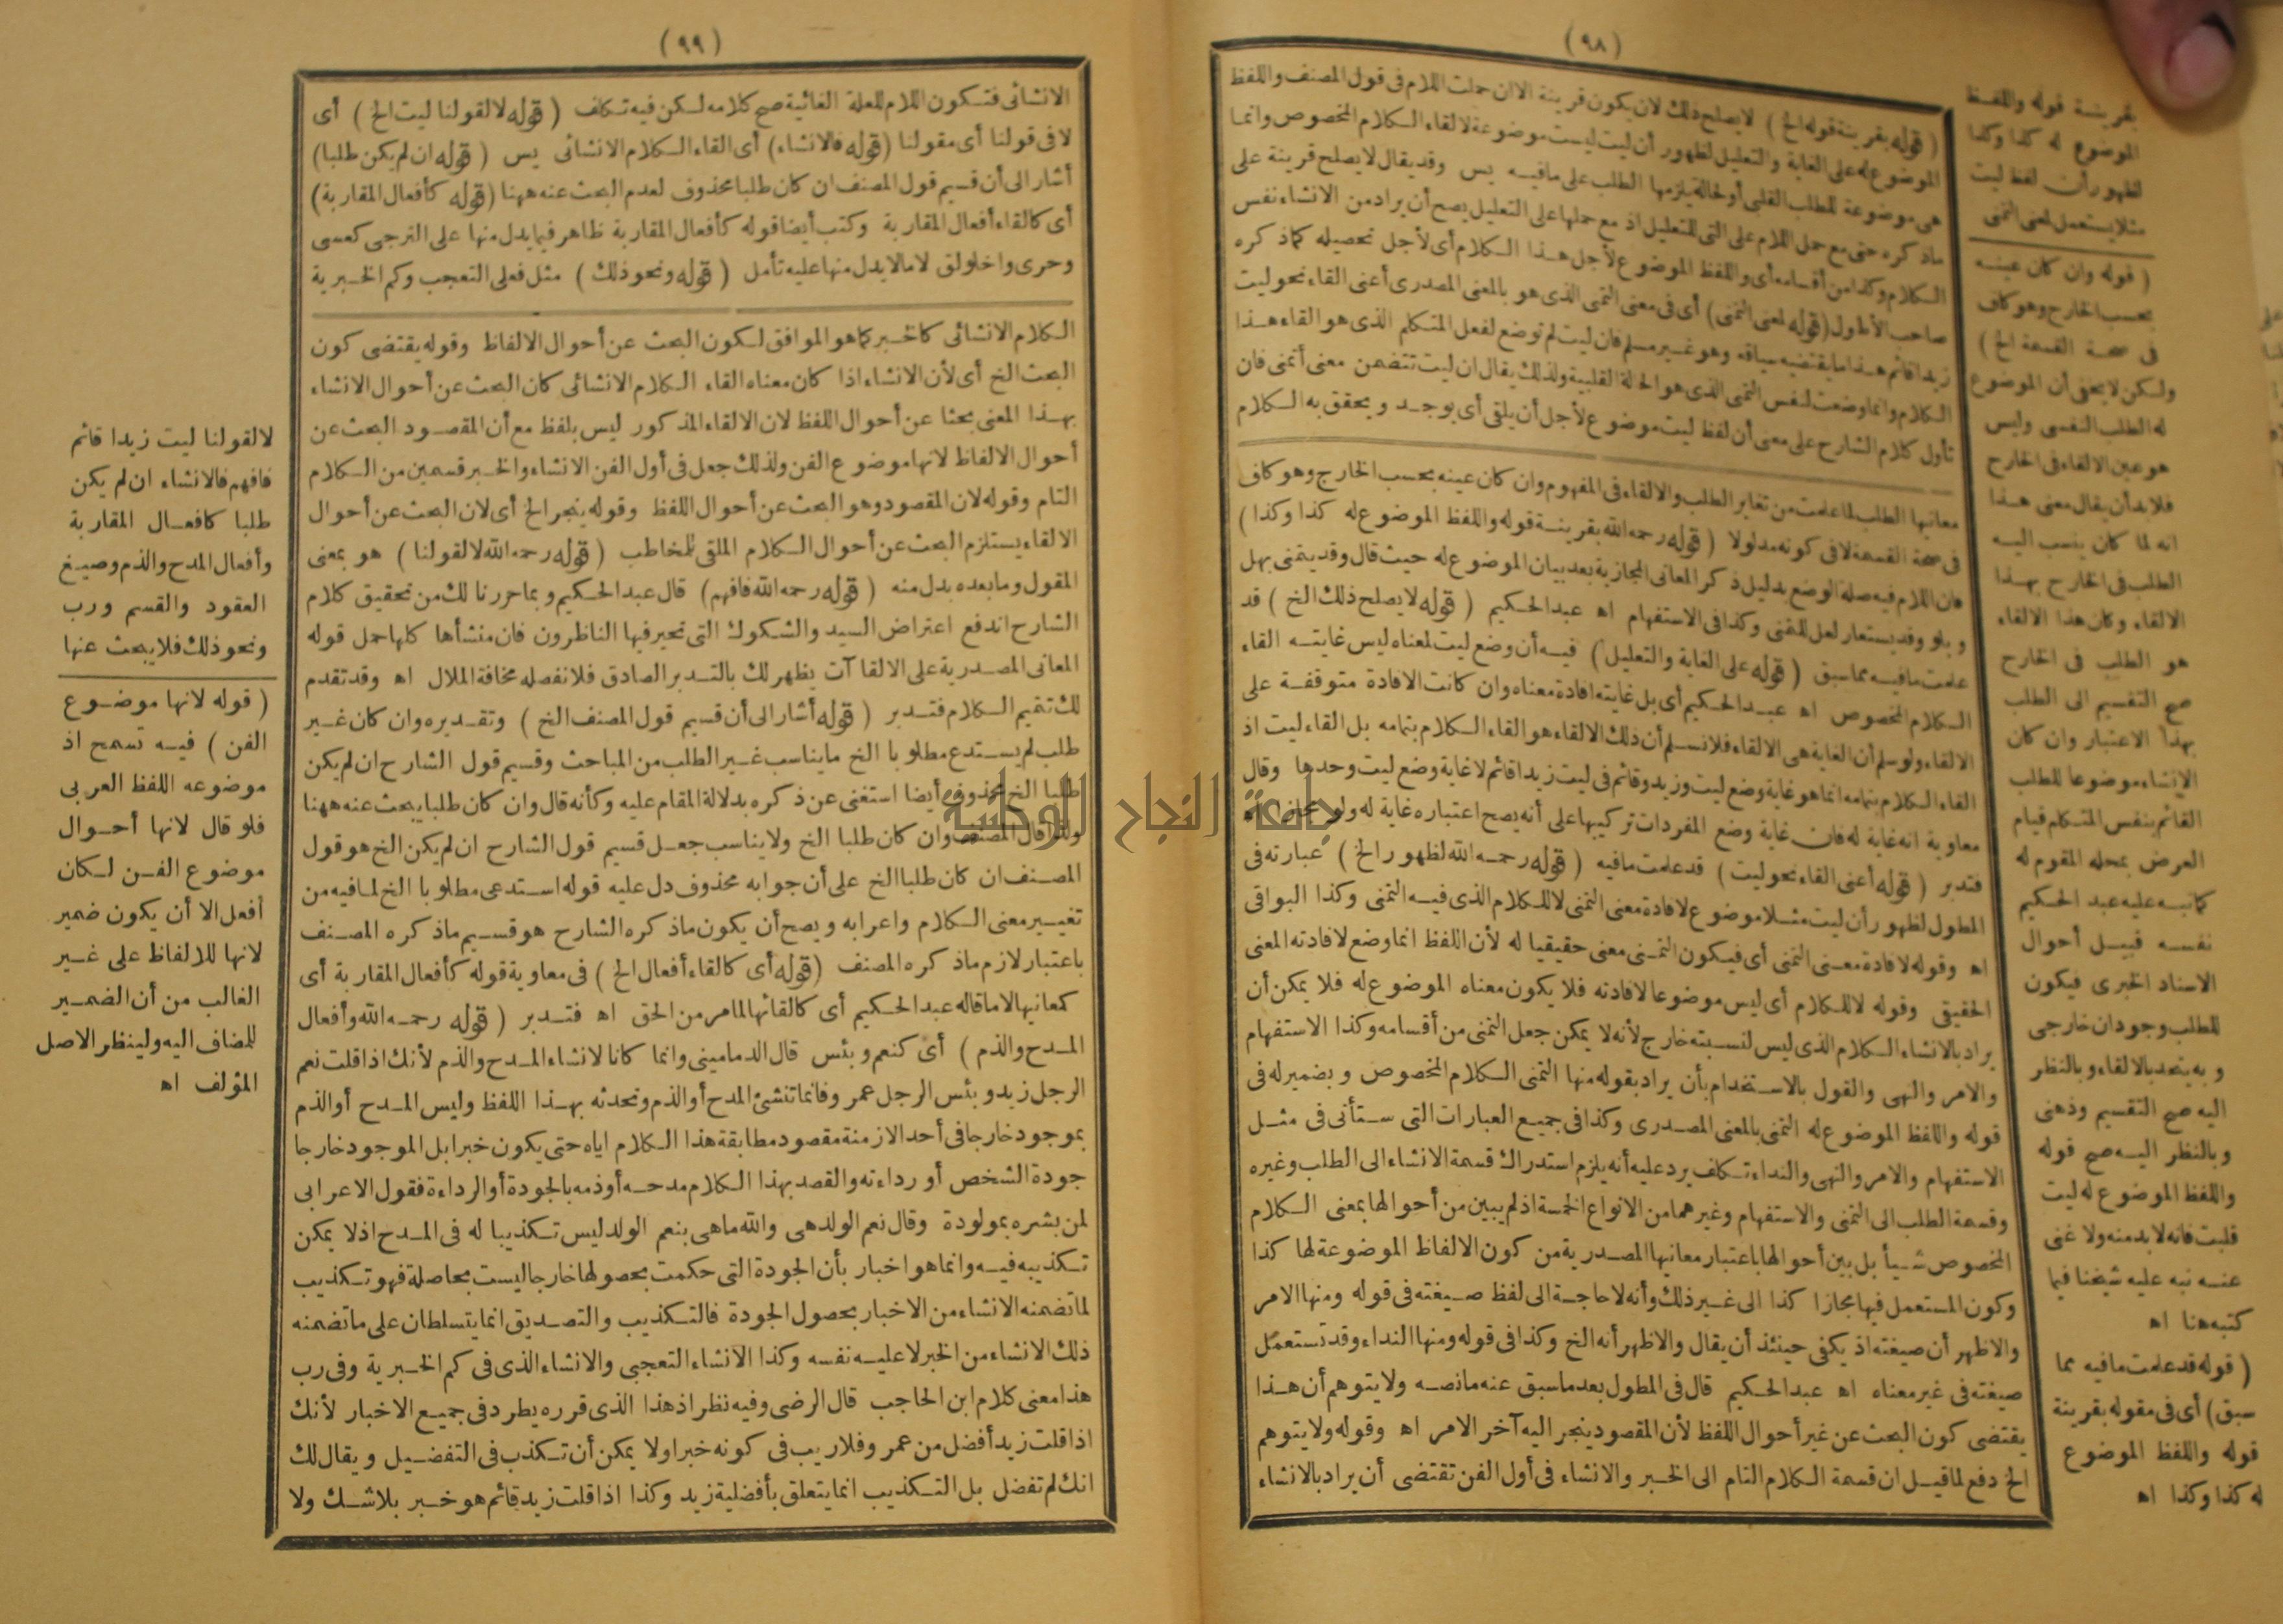 (٩٨)
بقرينة قوله واللفظ
الموضوع له كذا وكذا
لظهور أن لفظ ليت
مثلا يستعمل لمعنى التمنى
( قوله وان كان عينه
بحسب الخارج وهو كاف
فى صحة القسمة الخ )
ولكن لا يخفى أن الموضوع
له الطلب النفسى وليس
هو عين الالقاء فى الخارج
فلا بد أن يقال معنى هذا
انه لما كان ينسب اليه
الطلب فى الخارج بهذا
الالقاء وكان هذا الالقاء
هو الطلب فى الخارج
صح التقسيم الى الطلب
بهذا الاعتبار وان كان
الانشاء موضوعا للطلب
القائم بنفس المتكلم قيام
العرض بمحله المقوم له
كما نبه عليه عبد الحكيم
نفسه قبيل أحوال
الاسناد الخبرى فيكون
للطلب وجودان خارجى
وبه يتحد بالالقاء وبالنظر
اليه صح التقسيم وذهنى
وبالنظر اليه صح قوله
واللفظ الموضوع له ليت
قلت فانه لا بد منه ولا غنى
عنه نبه عليه شيخنا فيما
كتبه هنا اه
( قوله قد علمت ما فيه مما
سبق) أى فى مقوله بقرينة
قوله واللفظ الموضوع
له كذا وكذا اه
( قوله بقرينة قوله الخ ) لا يصلح ذلك لان يكون قرينة الا ان حملت اللام فى قول المصنف واللفظ
الموضوع له على الغاية والتعليل لظهور أن ليت ليست موضوعة لالقاء الكلام المخصوص وانما
هى موضوعة للطلب القلبى أو لحالة يلزمها الطلب على ما فيه يس وقد يقال لا يصلح قرينة على
ما ذكره حتى مع حمل اللام على التى للتعليل اذ مع حملها على التعليل يصح أن يراد من الانشاء نفس
الكلام وكذا من أقسامه أى واللفظ الموضوع لأجل هذا الكلام أى لأجل تحصيله كما ذكره
صاحب الأطول (قوله لمعنى التمنى) أى فى معنى التمنى الذى هو بالمعنى المصدرى أعنى القاء نحو ليت
زيدا قائم هذا ما يقتضيه سياقه وهو غير مسلم فان ليت لم توضع لفعل المتكلم الذى هو القاء هذا
الكلام وانما وضعت لنفس التمنى الذى هو الحالة القلبية ولذلك يقال ان ليت تتضمن معنى أتمنى فان
تأول كلام الشارح على معنى أن لفظ ليت موضوع لأجل أن يلقى أى يوجد ويحقق به الكلام
معانيها الطلب لما علمت من تغاير الطلب والالقاء فى المفهوم وان كان عينه بحسب الخارج وهو كاف
فى صحة القسمة لا فى كونه مدلولا ( قوله رحمه الله بقرينة قوله واللفظ الموضوع له كذا وكذا )
فان اللام فيه صلة الوضع بدليل ذكر المعانى المجازية بعد بيان الموضوع له حيث قال وقد يتمنى بهل
وبلو وقد يستعار لعل للتمنى وكذا فى الاستفهام اه عبد الحكيم ( قوله لا يصلح ذلك الخ ) قد
علمت ما فيه مما سبق ( قوله على الغاية والتعليل ) فيه أن وضع ليت لمعناه ليس غايته القاء
الكلام المخصوص اه عبد الحكيم أى بل غايته افادة معناه وان كانت الافادة متوقفة على
الالقاء ولو سلم أن الغاية هى الالقاء فلا نسلم أن ذلك الالقاء هو القاء الكلام بتمامه بل القاء ليت اذ
القاء الكلام بتمامه انما هو غاية وضع ليت وزيد وقائم فى ليت زيدا قائم لا غاية وضع ليت وحدها وقال
معاوية انه غاية له فان غاية وضع المفردات تركيبها على أنه يصح اعتباره غاية له ولو مجازا اه
فتدبر ( قوله أعنى القاء نحو ليت ) قد علمت ما فيه ( قوله رحمه الله لظهور الخ ) عبارته فى
المطول لظهور أن ليت مثلا موضوع لافادة معنى التمنى لا للكلام الذى فيه التمنى وكذا البواقى
اه وقوله لافادة معنى التمنى أى فيكون التمنى معنى حقيقيا له لأن اللفظ انما وضع لافادته المعنى
الحقيقى وقوله لا للكلام أى ليس موضوعا لافادته فلا يكون معناه الموضوع له فلا يمكن أن
يراد بالانشاء الكلام الذى ليس لنسبته خارج لأنه لا يمكن جعل التمنى من أقسامه وكذا الاستفهام
والامر والنهى والقول بالاستخدام بأن يراد بقوله منها التمنى الكلام المخصوص وبضمير له فى
قوله واللفظ الموضوع له التمنى بالمعنى المصدرى وكذا فى جميع العبارات التى ستأتى فى مثل
الاستفهام والامر والنهى والنداء تكلف يرد عليه أنه يلزم استدراك قسمة الانشاء الى الطلب وغيره
وقسمة الطلب الى التمنى والاستفهام وغيرهما من الانواع الخمسة اذ لم يبين من أحوالها بمعنى الكلام
المخصوص شيأ بل بين أحوالها باعتبار معانيها المصدرية من كون الالفاظ الموضوعة لها كذا
وكون المستعمل فيها مجازا كذا الى غير ذلك وأنه لا حاجة الى لفظ صيغته فى قوله ومنها الامر
والاظهر أن صيغته اذ يكفى حينئذ أن يقال والاظهر أنه الخ وكذا فى قوله ومنها النداء وقد تستعمل
صيغته فى غير معناه اه عبد الحكيم قال فى المطول بعد ما سبق عنه ما نصه ولا يتوهم أن هذا
يقتضى كون البحث عن غير أحوال اللفظ لأن المقصود ينجر اليه آخر الامر اه وقوله ولا يتوهم
الخ دفع لما قيل ان قسمة الكلام التام الى الخبر والانشاء فى أول الفن تقتضى أن يراد بالانشاء
(٩٩)
الانشائى فتكون اللام للعلة الغائية صح كلامه لكن فيه تكلف ( قوله لا لقولنا ليت الخ ) أى
لا فى قولنا أى مقولنا (قوله فالانشاء) أى القاء الكلام الانشائى يس ( قوله ان لم يكن طلبا)
أشار الى أن قسيم قول المصنف ان كان طلبا محذوف لعدم البحث عنه ههنا (قوله كأفعال المقاربة)
أى كالقاء أفعال المقاربة وكتب أيضا قوله كأفعال المقاربة ظاهر فيما يدل منها على الترجى كعسى
وحرى واخلولق لا ما لا يدل منها عليه تأمل ( قوله ونحو ذلك ) مثل فعلى التعجب وكم الخبرية
الكلام الانشائى كالخبر كما هو الموافق لكون البحث عن أحوال الالفاظ وقوله يقتضى كون
البحث الخ أى لأن الانشاء اذا كان معناه القاء الكلام الانشائى كان البحث عن أحوال الانشاء
بهذا المعنى بحثا عن أحوال اللفظ لان الالقاء المذكور ليس بلفظ مع أن المقصود البحث عن
أحوال الالفاظ لانها موضوع الفن ولذلك جعل فى أول الفن الانشاء والخبر قسمين من الكلام
التام وقوله لان المقصود وهو البحث عن أحوال اللفظ وقوله ينجر الخ أى لان البحث عن أحوال
الالقاء يستلزم البحث عن أحوال الكلام الملقى للمخاطب ( قوله رحمه الله لا لقولنا ) هو بمعنى
المقول وما بعده بدل منه ( قوله رحمه الله فافهم) قال عبد الحكيم وبما حررنا لك من تحقيق كلام
الشارح اندفع اعتراض السيد والشكوك التى تحير فيها الناظرون فان منشأها كلها حمل قوله
المعانى المصدرية على الالقاآت يظهر لك بالتدبر الصادق فلا نفصله مخافة الملال اه وقد تقدم
لك تتميم الكلام فتدبر ( قوله أشار الى أن قسيم قول المصنف الخ ) وتقديره وان كان غير
طلب لم يستدع مطلوبا الخ ما يناسب غير الطلب من المباحث وقسيم قول الشارح ان لم يكن
طلبا الخ محذوف أيضا استغنى عن ذكره بدلالة المقام عليه وكأنه قال وان كان طلبا يبحث عنه ههنا
ولذا قال المصنف وان كان طلبا الخ ولا يناسب جعل قسيم قول الشارح ان لم يكن الخ هو قول
المصنف ان كان طلبا الخ على أن جوابه محذوف دل عليه قوله استدعى مطلوبا الخ لما فيه من
تغيير معنى الكلام واعرابه ويصح أن يكون ما ذكره الشارح هو قسيم ما ذكره المصنف
باعتبار لازم ما ذكره المصنف (قوله أى كالقاء أفعال الخ ) فى معاوية قوله كأفعال المقاربة أى
كمعانيها لا ما قاله عبد الحكيم أى كالقائها لما مر من الحق اه فتدبر ( قوله رحمه الله وأفعال
المدح والذم ) أى كنعم وبئس قال الدمامينى وانما كانا لانشاء المدح والذم لأنك اذا قلت نعم
الرجل زيد وبئس الرجل عمرو فانما تنشئ المدح أو الذم وتحدثه بهذا اللفظ وليس المدح أو الذم
بموجود خارجا فى أحد الازمنة مقصود مطابقة هذا الكلام اياه حتى يكون خبرا بل الموجود خارجا
جودة الشخص أو رداءته والقصد بهذا الكلام مدحه أو ذمه بالجودة أو الرداءة فقول الاعرابى
لمن بشره بمولودة وقال نعم الولد هى والله ما هى بنعم الولد ليس تكذيبا له فى المدح اذ لا يمكن
تكذيبه فيه وانما هو اخبار بأن الجودة التى حكمت بحصولها خارجا ليست بحاصلة فهو تكذيب
لما تضمنه الانشاء من الاخبار بحصول الجودة فالتكذيب والتصديق انما يتسلطان على ما تضمنه
ذلك الانشاء من الخبر لا عليه نفسه وكذا الانشاء التعجبى والانشاء الذى فى كم الخبرية وفى رب
هذا معنى كلام ابن الحاجب قال الرضى وفيه نظر اذ هذا الذى قرره يطرد فى جميع الاخبار لأنك
اذا قلت زيد أفضل من عمرو فلا ريب فى كونه خبرا ولا يمكن أن تكذب فى التفضيل ويقال لك
انك لم تفضل بل التكذيب انما يتعلق بأفضلية زيد وكذا اذا قلت زيد قائم هو خبر بلا شك ولا
لا لقولنا ليت زيدا قائم
فافهم فالانشاء ان لم يكن
طلبا كافعال المقاربة
وأفعال المدح والذم وصيغ
العقود والقسم ورب
ونحو ذلك فلا يبحث عنها
( قوله لانها موضوع
الفن ) فيه تسمح اذ
موضوعه اللفظ العربى
فلو قال لانها أحوال
موضوع الفن لكان
أفعل الا أن يكون ضمير
لانها للالفاظ على غير
الغالب من أن الضمير
للمضاف اليه ولينظر الاصل
المؤلف اه
جامعة النجاح الوطنية